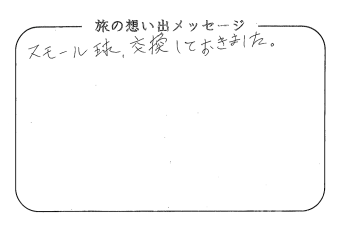 旅の想い出メッセージ
スモール球、交換しておきました。